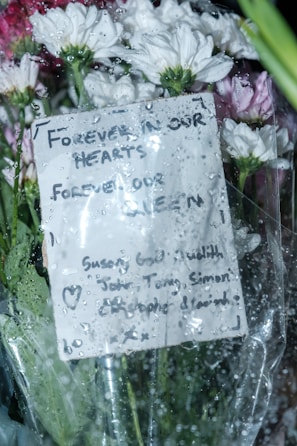 FOREVER IN OUR
HEARTS
FOREVER OUR
QUEEN
Susan, Gail, Judith
John, Tony, Simon
Christopher
xx